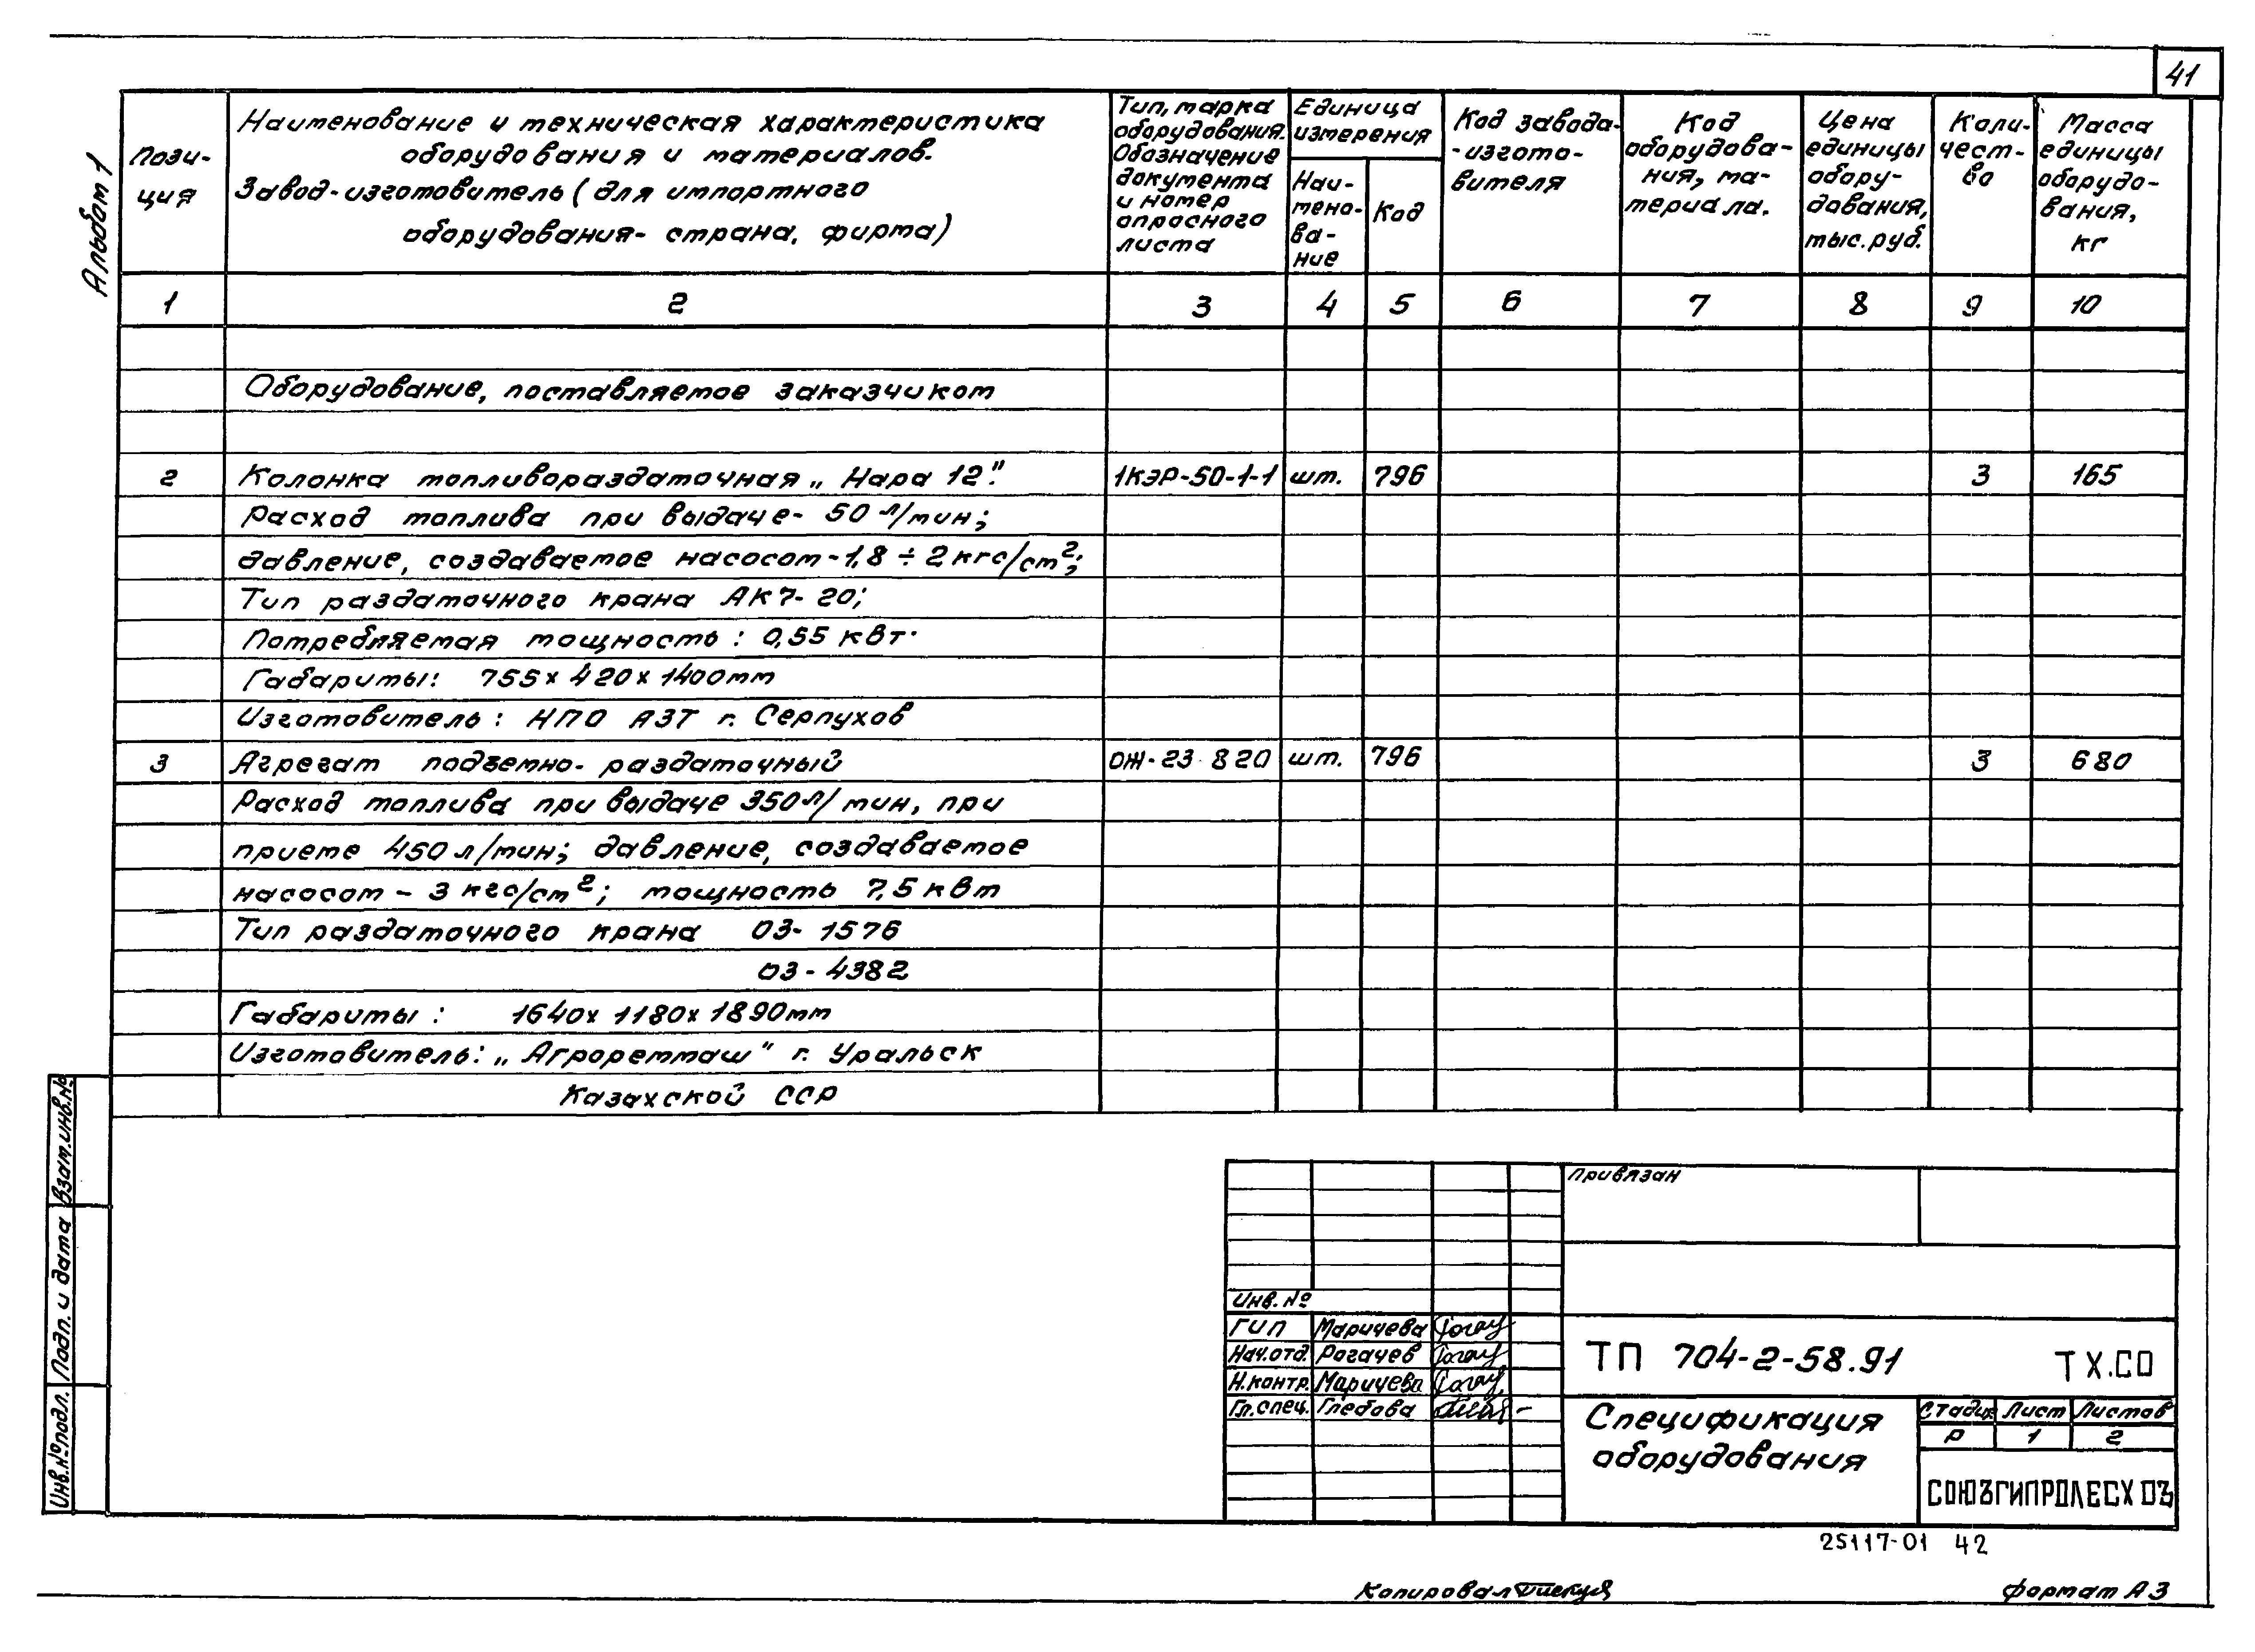 41
Альбом 1
Пози-
ция
Наименование и техническая характеристика
оборудования и материалов.
Завод-изготовитель (для импортного
оборудования- страна, фирма)
Тип, марка
оборудования.
Обозначение
документа
и номер
опросного
листа
Единица
измерения
Наи-
мено-
ва-
ние
Код
Код завода-
-изгото-
вителя
Код
оборудова-
ния, ма-
териала.
Цена
единицы
обору-
дования,
тыс. руб.
Коли-
чест-
во
Масса
единицы
оборудо-
вания,
кг
1 2 3 4 5 6 7 8 9 10
Оборудование, поставляемое заказчиком
2 Колонка топливораздаточная „Нара 12". 1КЭР-50-1-1 шт. 796 3 165
Расход топлива при выдаче- 50 л/мин;
давление, создаваемое насосом-1,8 ÷ 2 кгс/см²;
Тип раздаточного крана АК7-20;
Потребляемая мощность: 0,55 квт.
Габариты: 755х420х1400мм
Изготовитель: НПО АЗТ г. Серпухов
3 Агрегат подъемно-раздаточный ОЖ-23 820 шт. 796 3 680
Расход топлива при выдаче 350л/мин, при
приеме 450 л/мин; давление, создаваемое
насосом - 3 кгс/см²; мощность 7,5 квт
Тип раздаточного крана ОЗ-1576
ОЗ-4382
Габариты: 1640х1180х1890мм
Изготовитель: „Агрореммаш" г. Уральск
Казахской ССР
Взам.инв.№
Подп. и дата
Инв.№подл.
Привязан
Инв. №
ГИП Маричева
Нач.отд. Рогачев
Н.контр. Маричева
Гл.спец. Глебова
ТП 704-2-58.91 ТХ.СО
Спецификация
оборудования
Стадия Лист Листов
Р 1 2
СОЮЗГИПРОЛЕСХОЗ
25117-01 42
Копировал
Формат А3